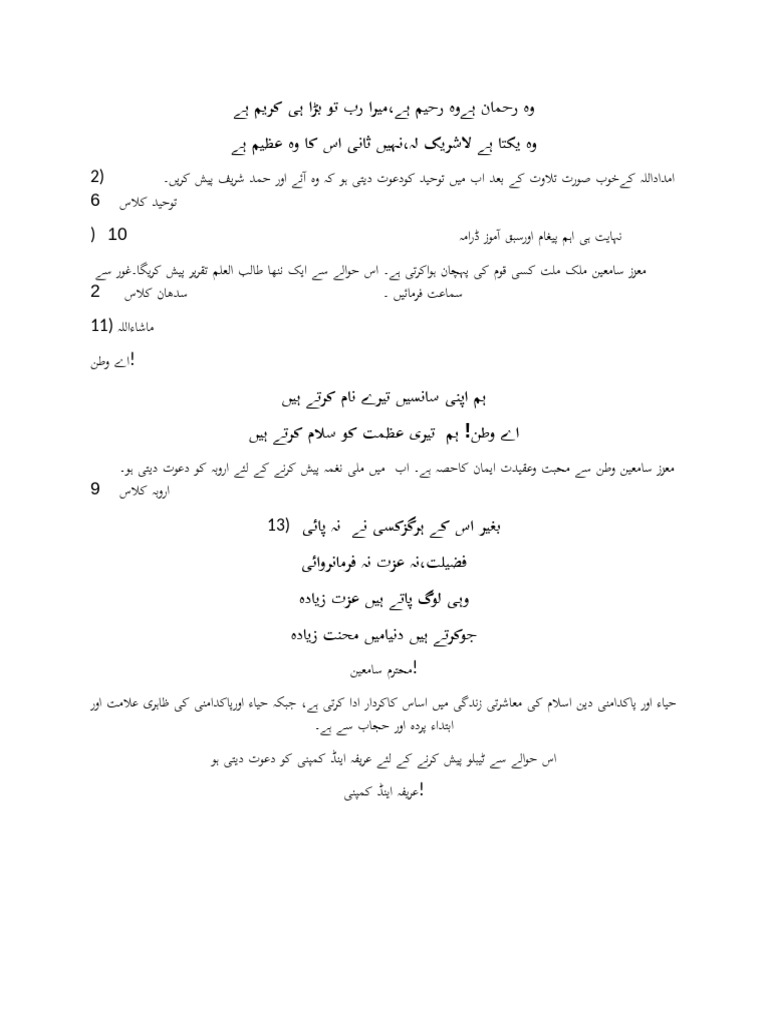 وہ رحمان ہےوہ رحیم ہے،میرا رب تو بڑا ہی کریم ہے
وہ یکتا ہے لاشریک لہ،نہیں ثانی اس کا وہ عظیم ہے
2) امداداللہ کےخوب صورت تلاوت کے بعد اب میں توحید کودعوت دیتی ہو کہ وہ آئے اور حمد شریف پیش کریں۔
توحید کلاس 6
10 ) نہایت ہی اہم پیغام اورسبق آموز ڈرامہ
معزز سامعین ملک ملت کسی قوم کی پہچان ہواکرتی ہے۔ اس حوالے سے ایک ننھا طالب العلم تقریر پیش کریگا۔غور سے
سماعت فرمائیں ۔ سدھان کلاس 2
11) ماشاءاللہ
اے وطن!
ہم اپنی سانسیں تیرے نام کرتے ہیں
اے وطن! ہم تیری عظمت کو سلام کرتے ہیں
معزز سامعین وطن سے محبت وعقیدت ایمان کاحصہ ہے۔ اب میں ملی نغمہ پیش کرنے کے لئے ارویہ کو دعوت دیتی ہو۔
ارویہ کلاس 9
13) بغیر اس کے ہرگزکسی نے نہ پائی
فضیلت،نہ عزت نہ فرمانروائی
وہی لوگ پاتے ہیں عزت زیادہ
جوکرتے ہیں دنیامیں محنت زیادہ
محترم سامعین!
حیاء اور پاکدامنی دین اسلام کی معاشرتی زندگی میں اساس کاکردار ادا کرتی ہے، جبکہ حیاء اورپاکدامنی کی ظاہری علامت اور
ابتداء پردہ اور حجاب سے ہے۔
اس حوالے سے ٹیبلو پیش کرنے کے لئے عریفہ اینڈ کمپنی کو دعوت دیتی ہو
عریفہ اینڈ کمپنی!